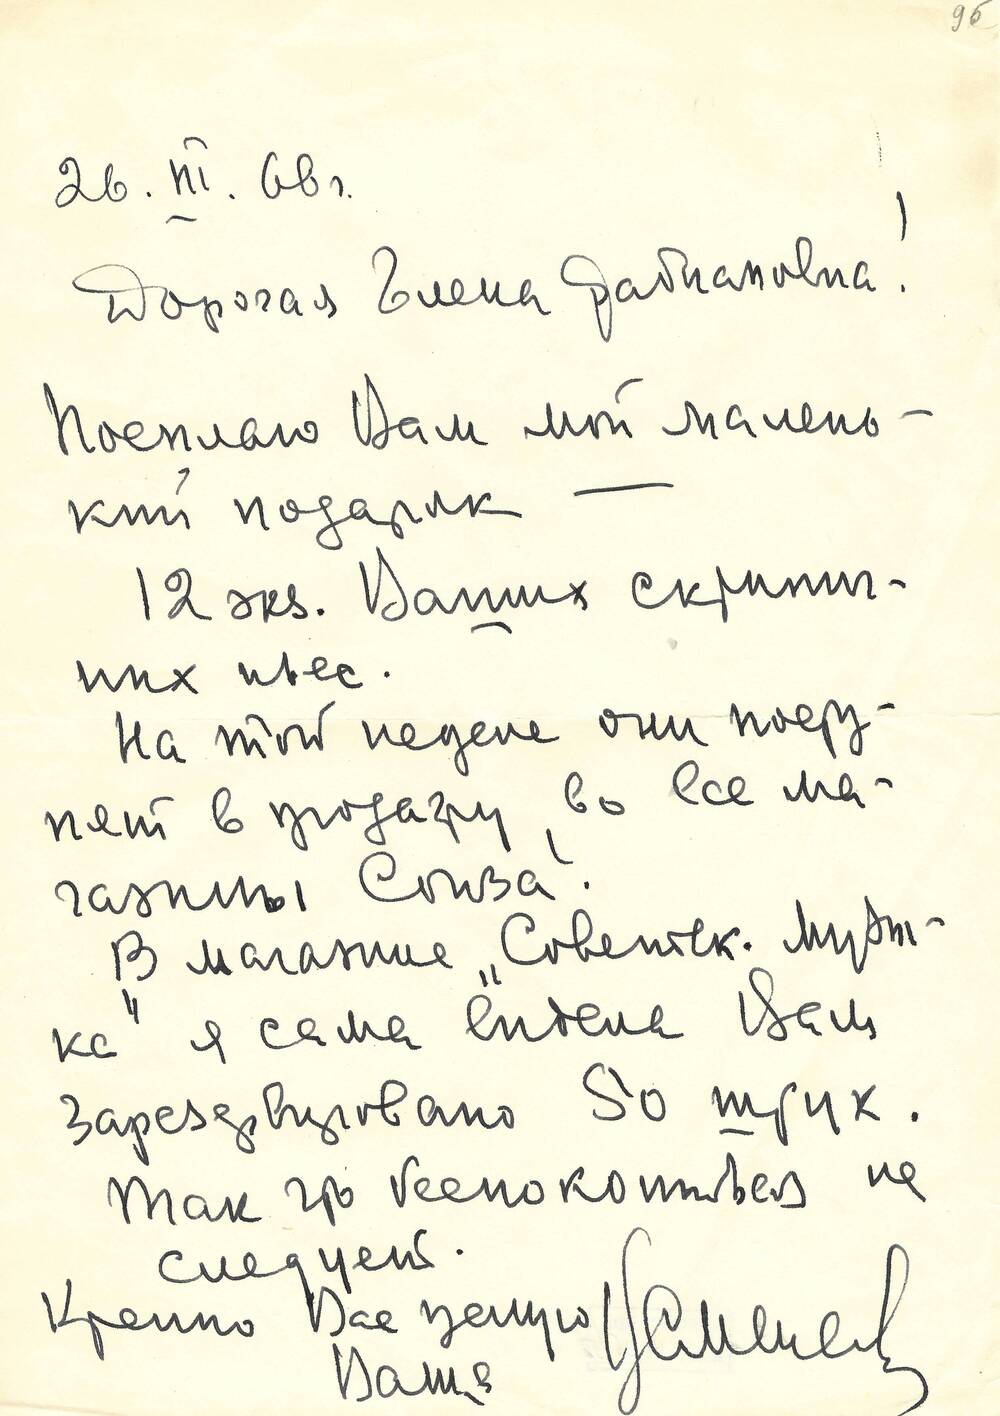 96
26. III. 66 г.
Дорогая Елена Фабиановна!
Посылаю Вам мой малень-
кий подарок —
12 экз. Ваших скрипич-
ных пьес.
На той неделе они посту-
пят в продажу во все ма-
газины Союза!
В магазине „Советск. музы-
ка" я сама видела Вам
зарезервировано 50 штук.
Так что беспокоиться не
следует.
Крепко Вас целую
Ваша